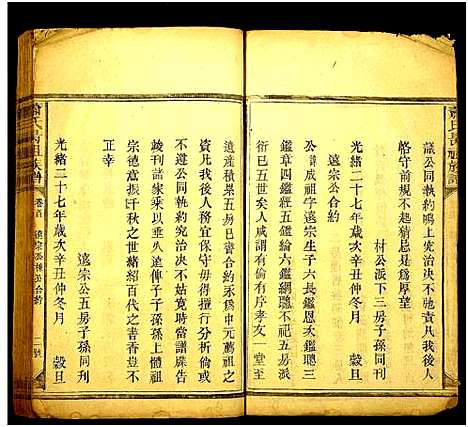 議公同執約鳴上宪治決不徇責凡我後人
恪守前規不起爭忌是爲厚望
材公派下三房同刊
光緒二十七年歲次辛丑仲冬月 穀旦
遠宗公合約
公諱成祖字遠宗生子六長鑑恩次鑑聰三
鑑章四鑑經五鑑六鑑網隱不祀五房派
衍已五世矣人咸謂有倫有序孝友一堂至
遺産積累五房已書合約永爲中元薦祖之
資凡我後人務宜保守毋得擅行分析倘或
不遵公同執約宪治決不姑寬時當譜牒告
竣行刊諸家乘以垂久遠俾子子孫孫上體祖
宗德意振千秋之世緒紹百代之書香豈不
正幸
遠宗公五房子孫同刊
光緒二十七年歲次辛丑仲冬月 穀旦
卷首
遠宗公合約
二號